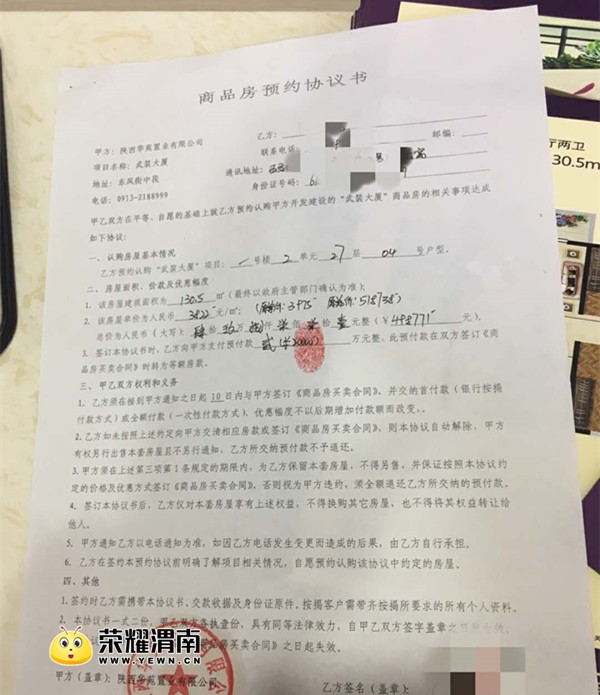 商品房预约协议书
甲方：陕西华苑置业有限公司
项目名称：武装大厦
地址：东风街中段
电话：0913-2188999
乙方：
邮编：
联系电话：
通讯地址：
身份证号码：6
甲乙双方在平等、自愿的基础上就乙方预约认购甲方开发建设的“武装大厦”商品房的相关事项达成
如下协议：
一、认购房屋基本情况
乙方预约认购“武装大厦”项目：一号楼 2 单元 27 层 04 号户型。
二、房屋面积、价款及优惠幅度
1. 该房屋建筑面积为 130.5 ㎡（最终以政府主管部门确认为准）；
2. 该房屋单价为人民币 3822 元/㎡；（原单价：3975 原总价：518738）
总价为人民币（大写）肆拾玖万捌仟柒佰柒拾壹元整（￥498771元）。
3. 签订本协议书时，乙方向甲方支付预付款 贰（￥20000）万元整，此预付款在双方签订《商
品房买卖合同》时转为等额房款。
三、甲乙双方权利和义务
1. 乙方须在接到甲方通知之日起 10 日内与甲方签订《商品房买卖合同》，并交纳首付款（银行按揭
付款方式）或全额付款（一次性付款方式），优惠幅度不以后期增加付款额而改变。
2. 乙方如未按照上述约定向甲方交清相应房款或签订《商品房买卖合同》，则本协议自动解除，甲方
有权另行出售本套房屋且不另行通知，乙方所交纳的预付款不予退还。
3. 甲方须在上述第三项第1条规定的期限内，为乙方保留本套房屋，不得另售，并保证按照本协议约
定的价格及优惠方式签订《商品房买卖合同》，否则视为甲方违约，须全额退还乙方所交纳的预付款。
4. 签订本协议书后，乙方仅对本套房屋享有上述权益，不得换购其它房屋，也不得将其权益转让给
他人。
5. 甲方通知乙方以电话通知为准，如因乙方电话发生变更而造成的后果，由乙方自行承担。
6. 乙方在签约本预约协议前明确了解项目相关情况，自愿预约认购该协议中约定的房屋。
四、其他
1. 签约时乙方需携带本协议书、交款收据及身份证原件，按揭客户需带齐按揭所要求的所有个人资料。
2. 本协议一式二份，甲乙双方各执壹份，具有同等法律效力，自甲乙双方签字盖章之日起生效；
房买卖合同》之日起失效。
甲方（盖章）：陕西华苑置业有限公司
乙方签名（盖章）：
厅两卫
30.5m
荣耀渭南
WWW.YEWN.CN